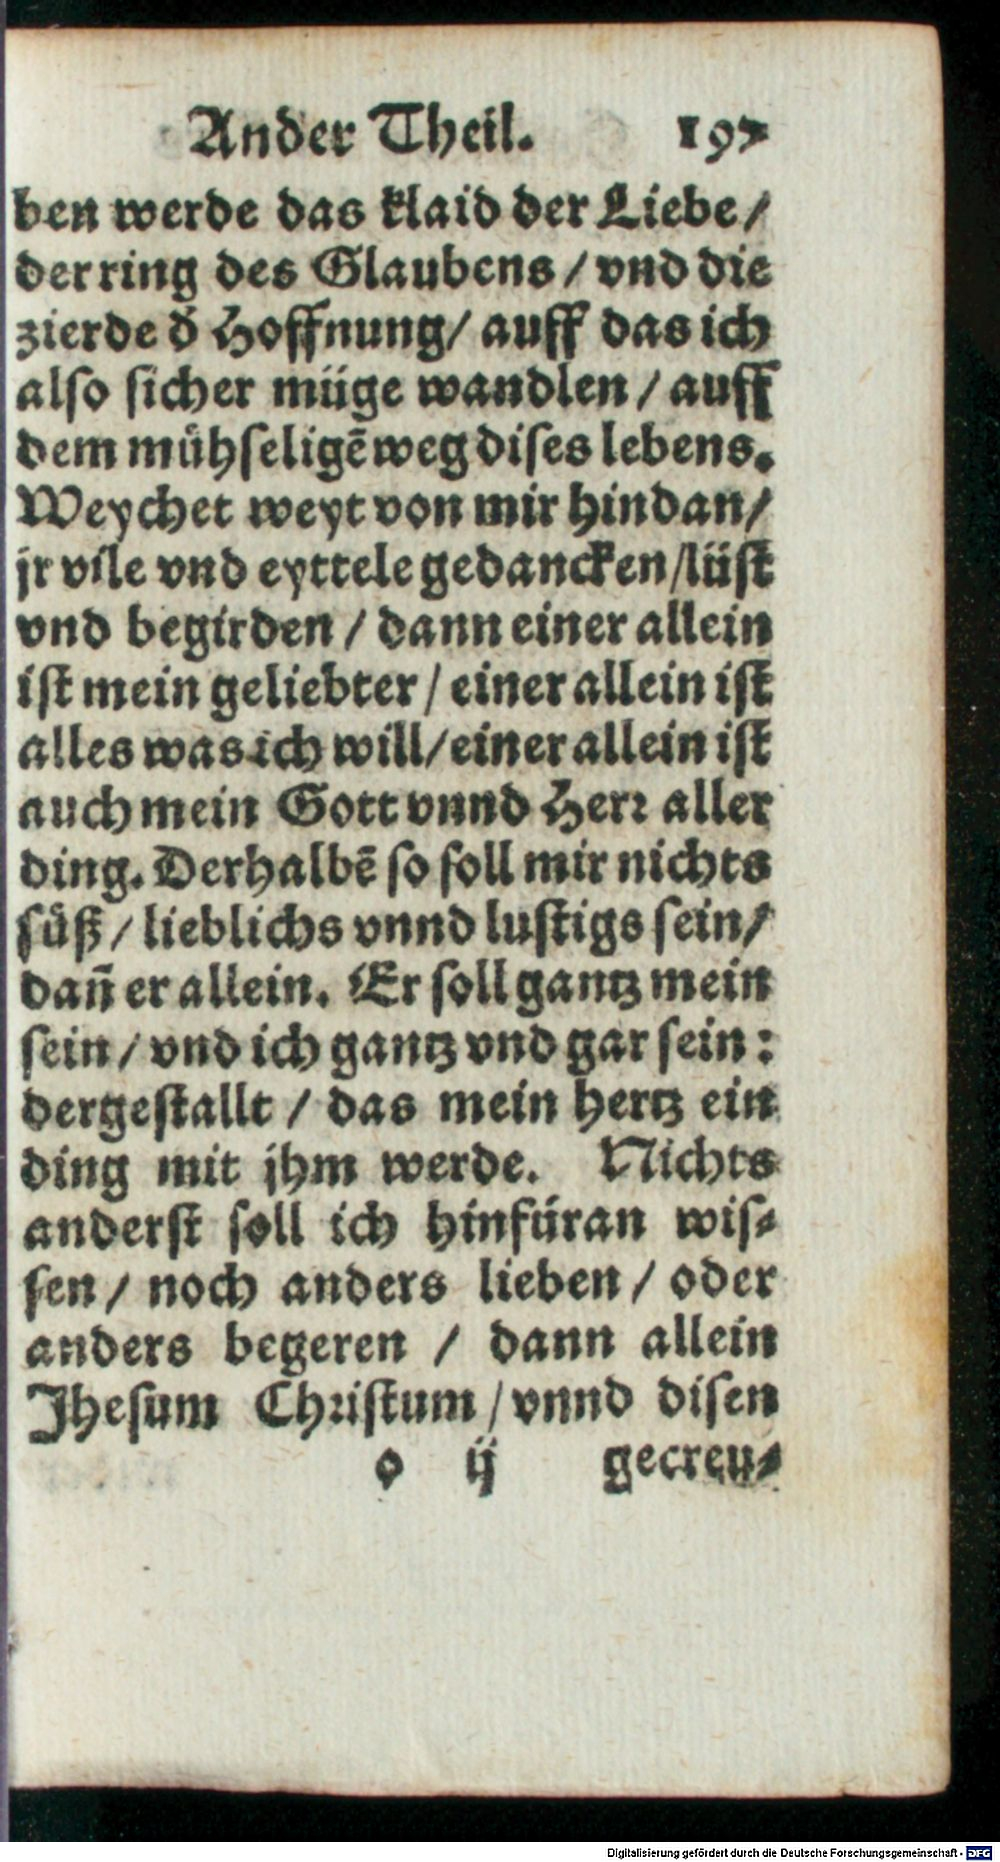 Ander Theil. 197
ben werde das klaid der Liebe /
der ring des Glaubens / vnd die
zierde d̕ Hoffnung / auff das ich
also sicher müge wandlen / auff
dem mühseligē weg dises lebens.
Weychet weyt von mir hindan /
jr vile vnd eyttele gedancken / lüst
vnd begirden / dann einer allein
ist mein geliebter / einer allein ist
alles was ich will / einer allein ist
auch mein Gott vnnd Herr aller
ding. Derhalbē so soll mir nichts
süß / lieblichs vnnd lustigs sein /
dañ er allein. Er soll gantz mein
sein / vnd ich gantz vnd gar sein:
dergestallt / das mein hertz ein
ding mit jhm werde. Nichts
anderst soll ich hinfüran wis-
sen / noch anders lieben / oder
anders begeren / dann allein
Jhesum Christum / vnnd disen
o ij gecreu-
Digitalisierung gefördert durch die Deutsche Forschungsgemeinschaft - DFG